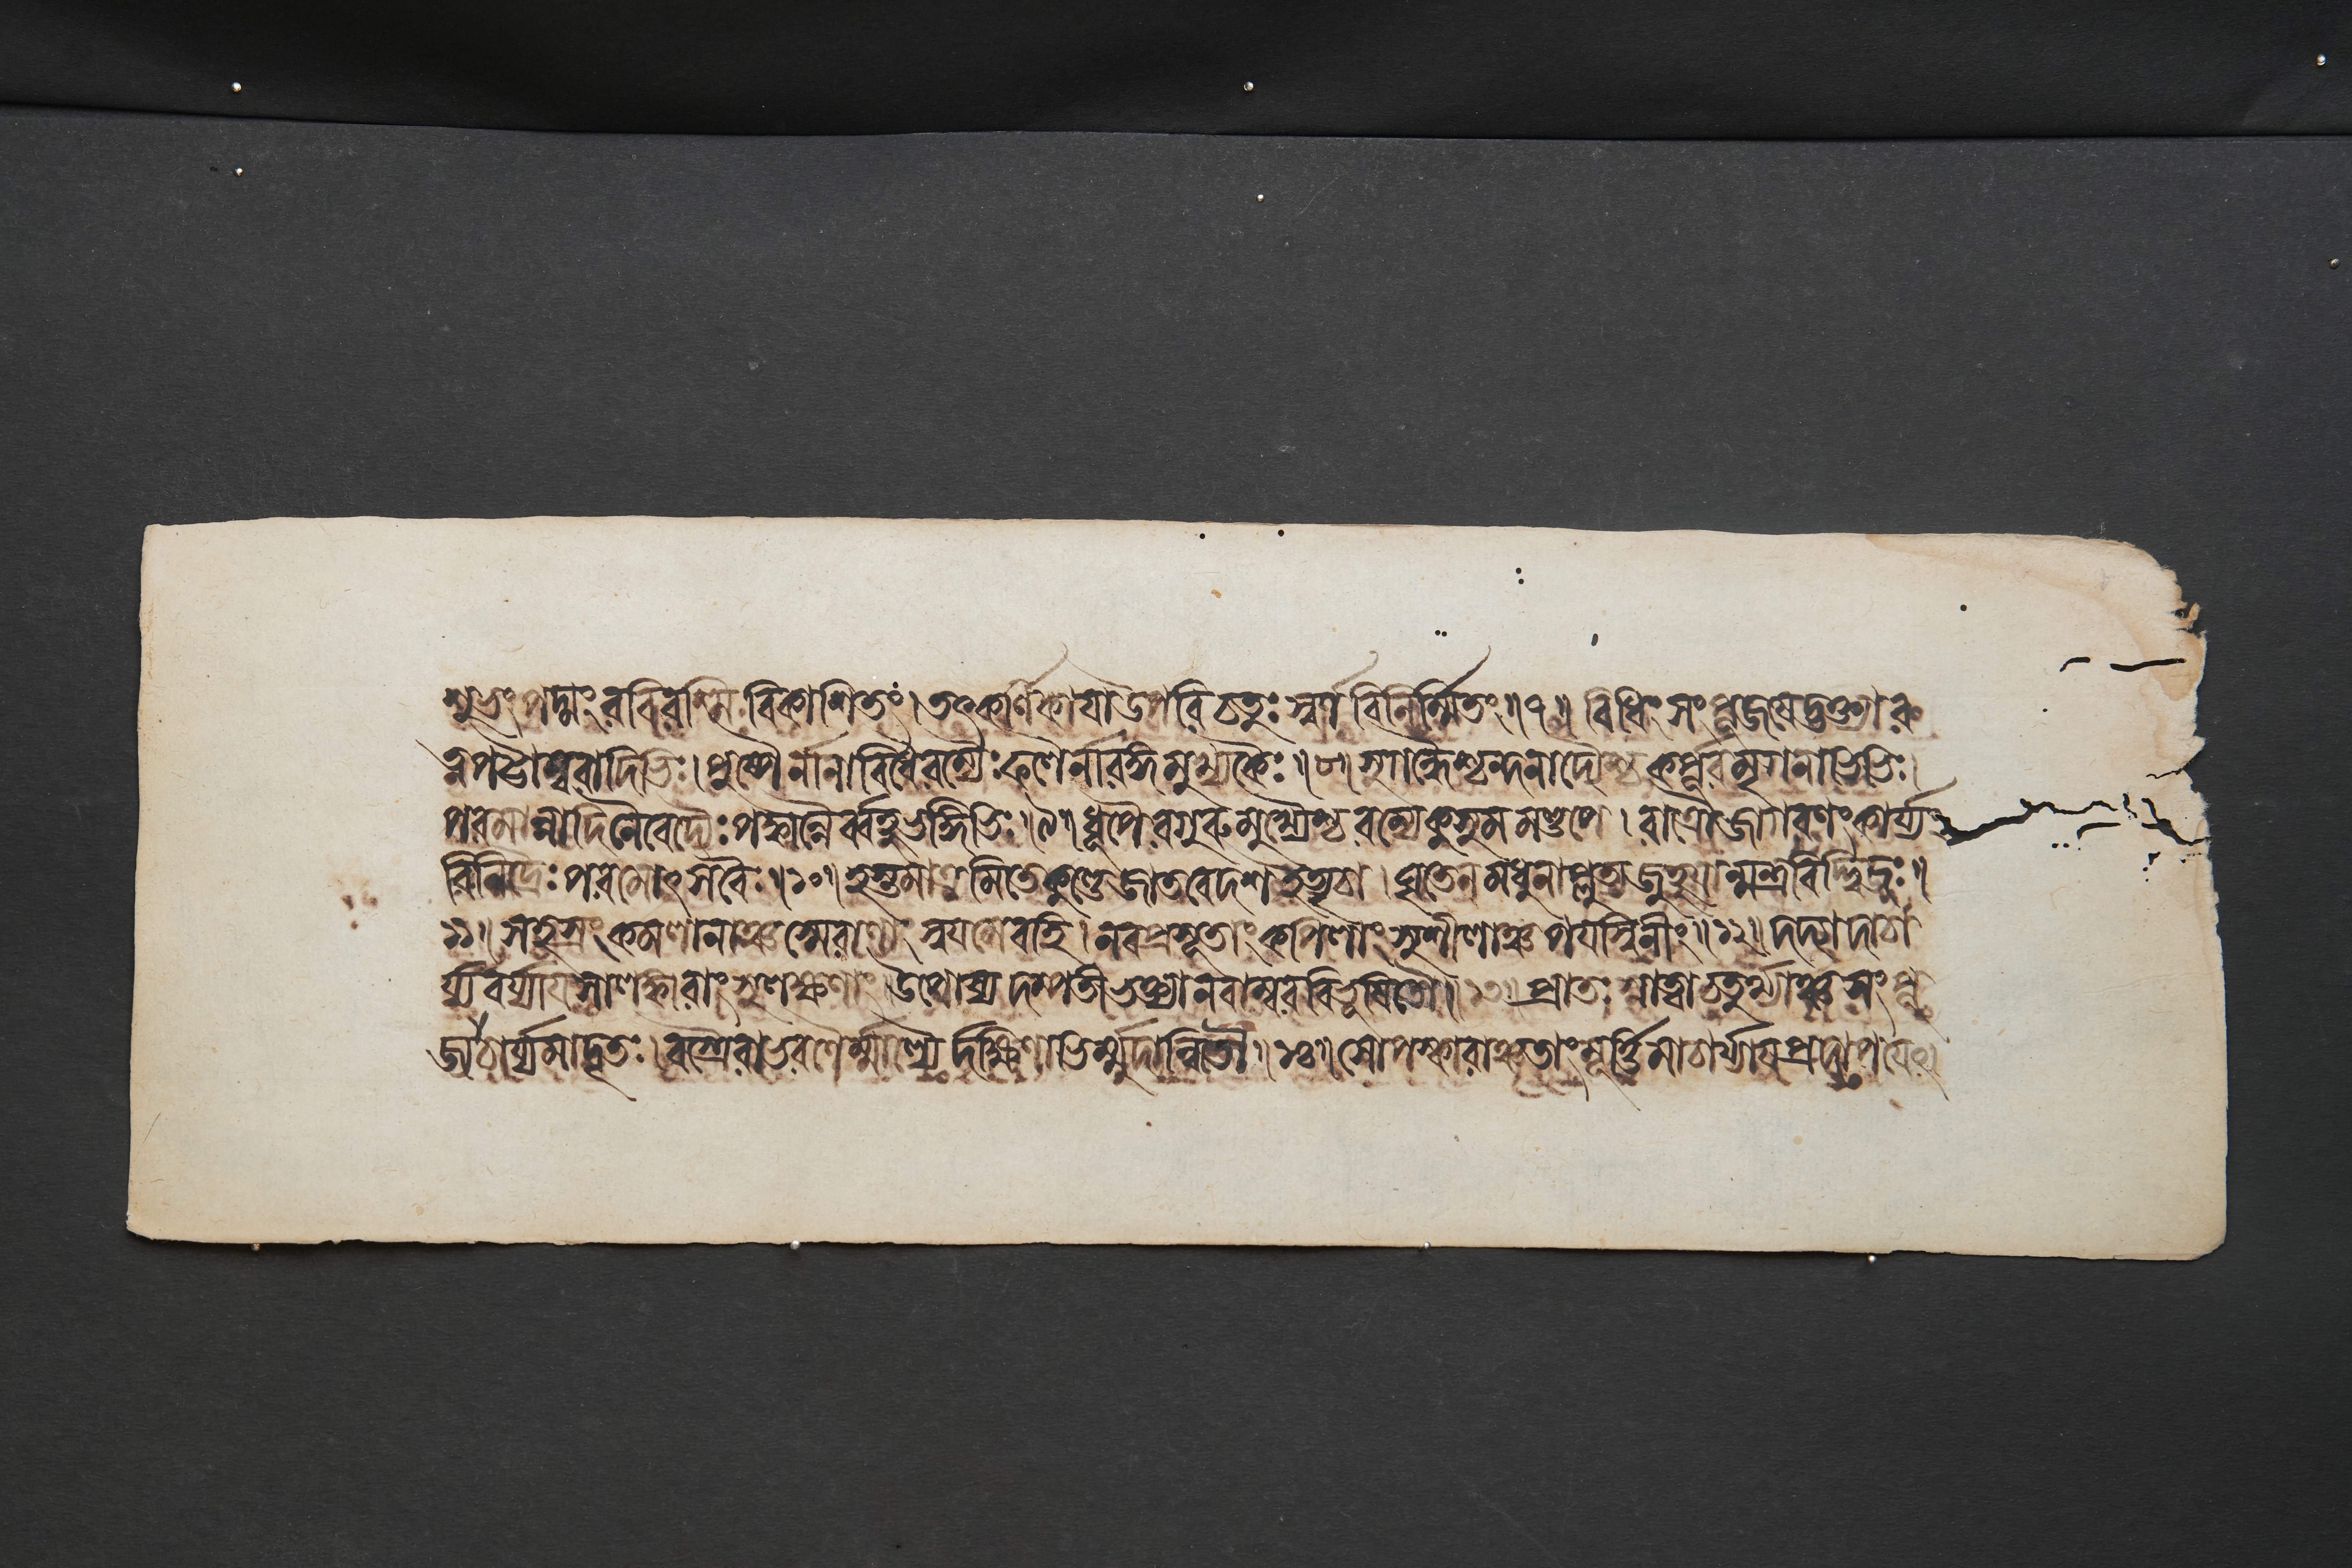 শুভং পদ্মং রবিরশ্মি বিকাশিতং। তৎকর্ণিকায়াউপরি চতুঃস্বর্ণ বিনির্ম্মিতং॥৭॥ বিধিং সং পূজয়েদ্ভক্ত্যা র
ত্নপট্টাম্বরাদিভিঃ। পুষ্পৈর্নানাবিধৈরম্যৈঃ ফলৈর্নারঙ্গমুখ্যকৈঃ॥৮॥ সুগন্ধৈশ্চন্দনাদ্যৈশ্চ কর্পূরমৃগনাভিভিঃ।
পরমান্নাদিনৈবেদ্যৈঃ পক্বান্নৈর্ব্বহুভঙ্গিভিঃ॥৯॥ ধূপৈরগুরুমুখ্যৈশ্চ রম্যেকুসুমমণ্ডপে। রাত্রৌজাগরণং কার্য্যং
বিনিদ্রৈঃ পরমোৎসবৈঃ॥১০॥ হস্তমাত্রমিতেকুণ্ডে জাতবেদশ ঘৃতেন মধুনাপ্লুত্য জুহুয়ান্মন্ত্রবিদ্দ্বিজঃ॥
১১॥ সহস্রং কমলানাঞ্চ স্মেরাণাং স্বয়মেবহি। নবপ্রসূতাং কপিলাং সুশীলাঞ্চ পয়স্বিনীং॥১২॥ দদ্যাদাচা
র্য্যবর্য্যায় সালঙ্কারাং সুলক্ষণাং। উপোষ্য দম্পতীভক্ত্যা নবাম্বরবিভূষিতৌ॥১৩॥ প্রাতঃস্নাত্বাচতুর্থ্যাঞ্চ সং পূ
জ্যাচার্য্যমাদৃতঃ। বস্ত্রৈরাভরণৈর্ম্মাল্যৈর্দক্ষিণাভির্ম্মুদান্বিতৌ॥১৪॥ সোপস্কারাঞ্চতাং মূর্ত্তিমাচার্য্যায় প্রদাপয়েৎ।